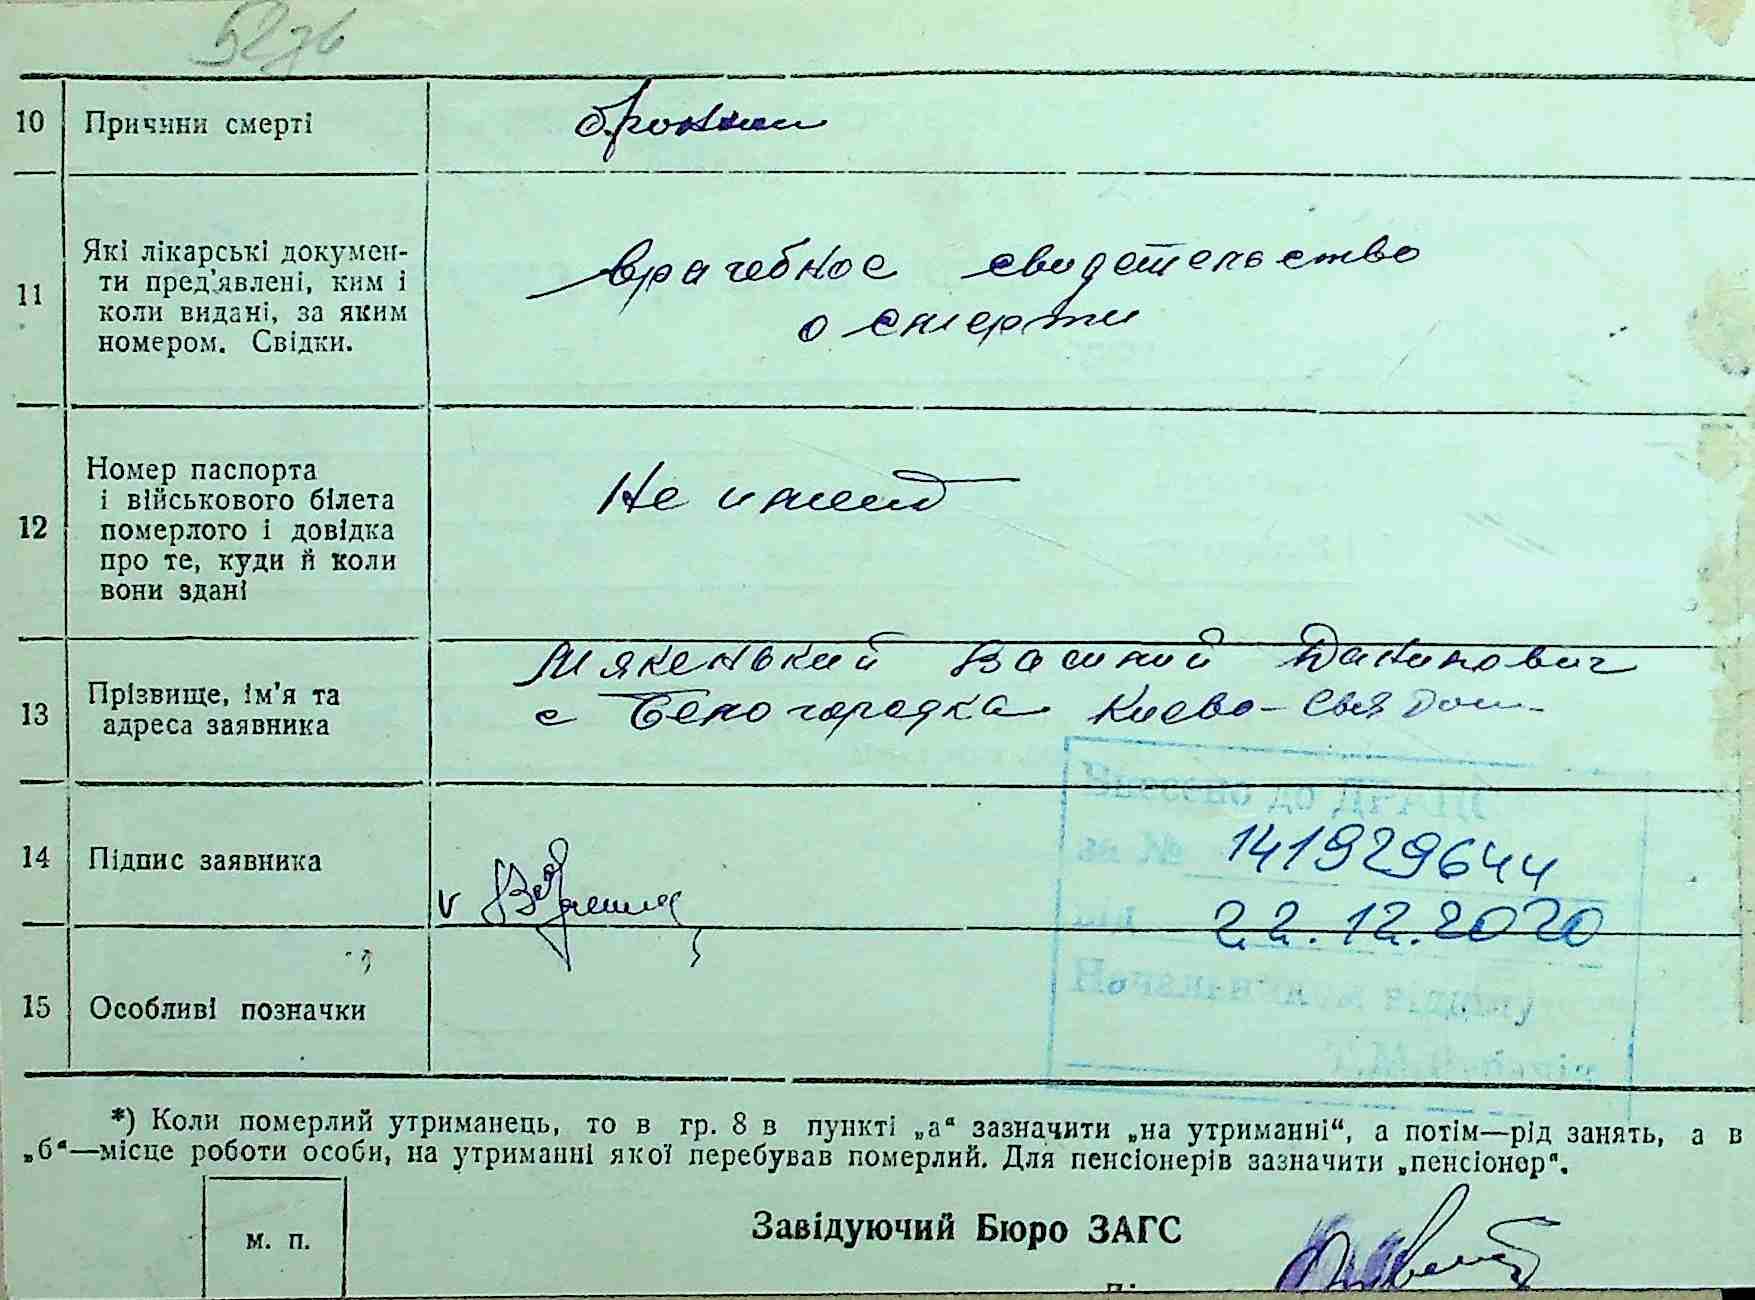 10 Причини смерті
11 Які лікарські докумен-
ти пред'явлені, ким і
коли видані, за яким
номером. Свідки.
врачебное свидетельство
о смерти
12 Номер паспорта
і військового білета
померлого і довідка
про те, куди й коли
вони здані
Не имеет
13 Прізвище, ім'я та
адреса заявника
Мякенький Василий Данилович
с Белогородка Киево-Святош
14 Підпис заявника
v
Внесено до ДРАЦС
за № 141929644
від 22.12.2020
Начальником відділу
15 Особливі позначки
*) Коли померлий утриманець, то в гр. 8 в пункті „а“ зазначити „на утриманні“, а потім—рід занять, а в
„б“—місце роботи особи, на утриманні якої перебував померлий. Для пенсіонерів зазначити „пенсіонер“.
М. П.
Завідуючий Бюро ЗАГС